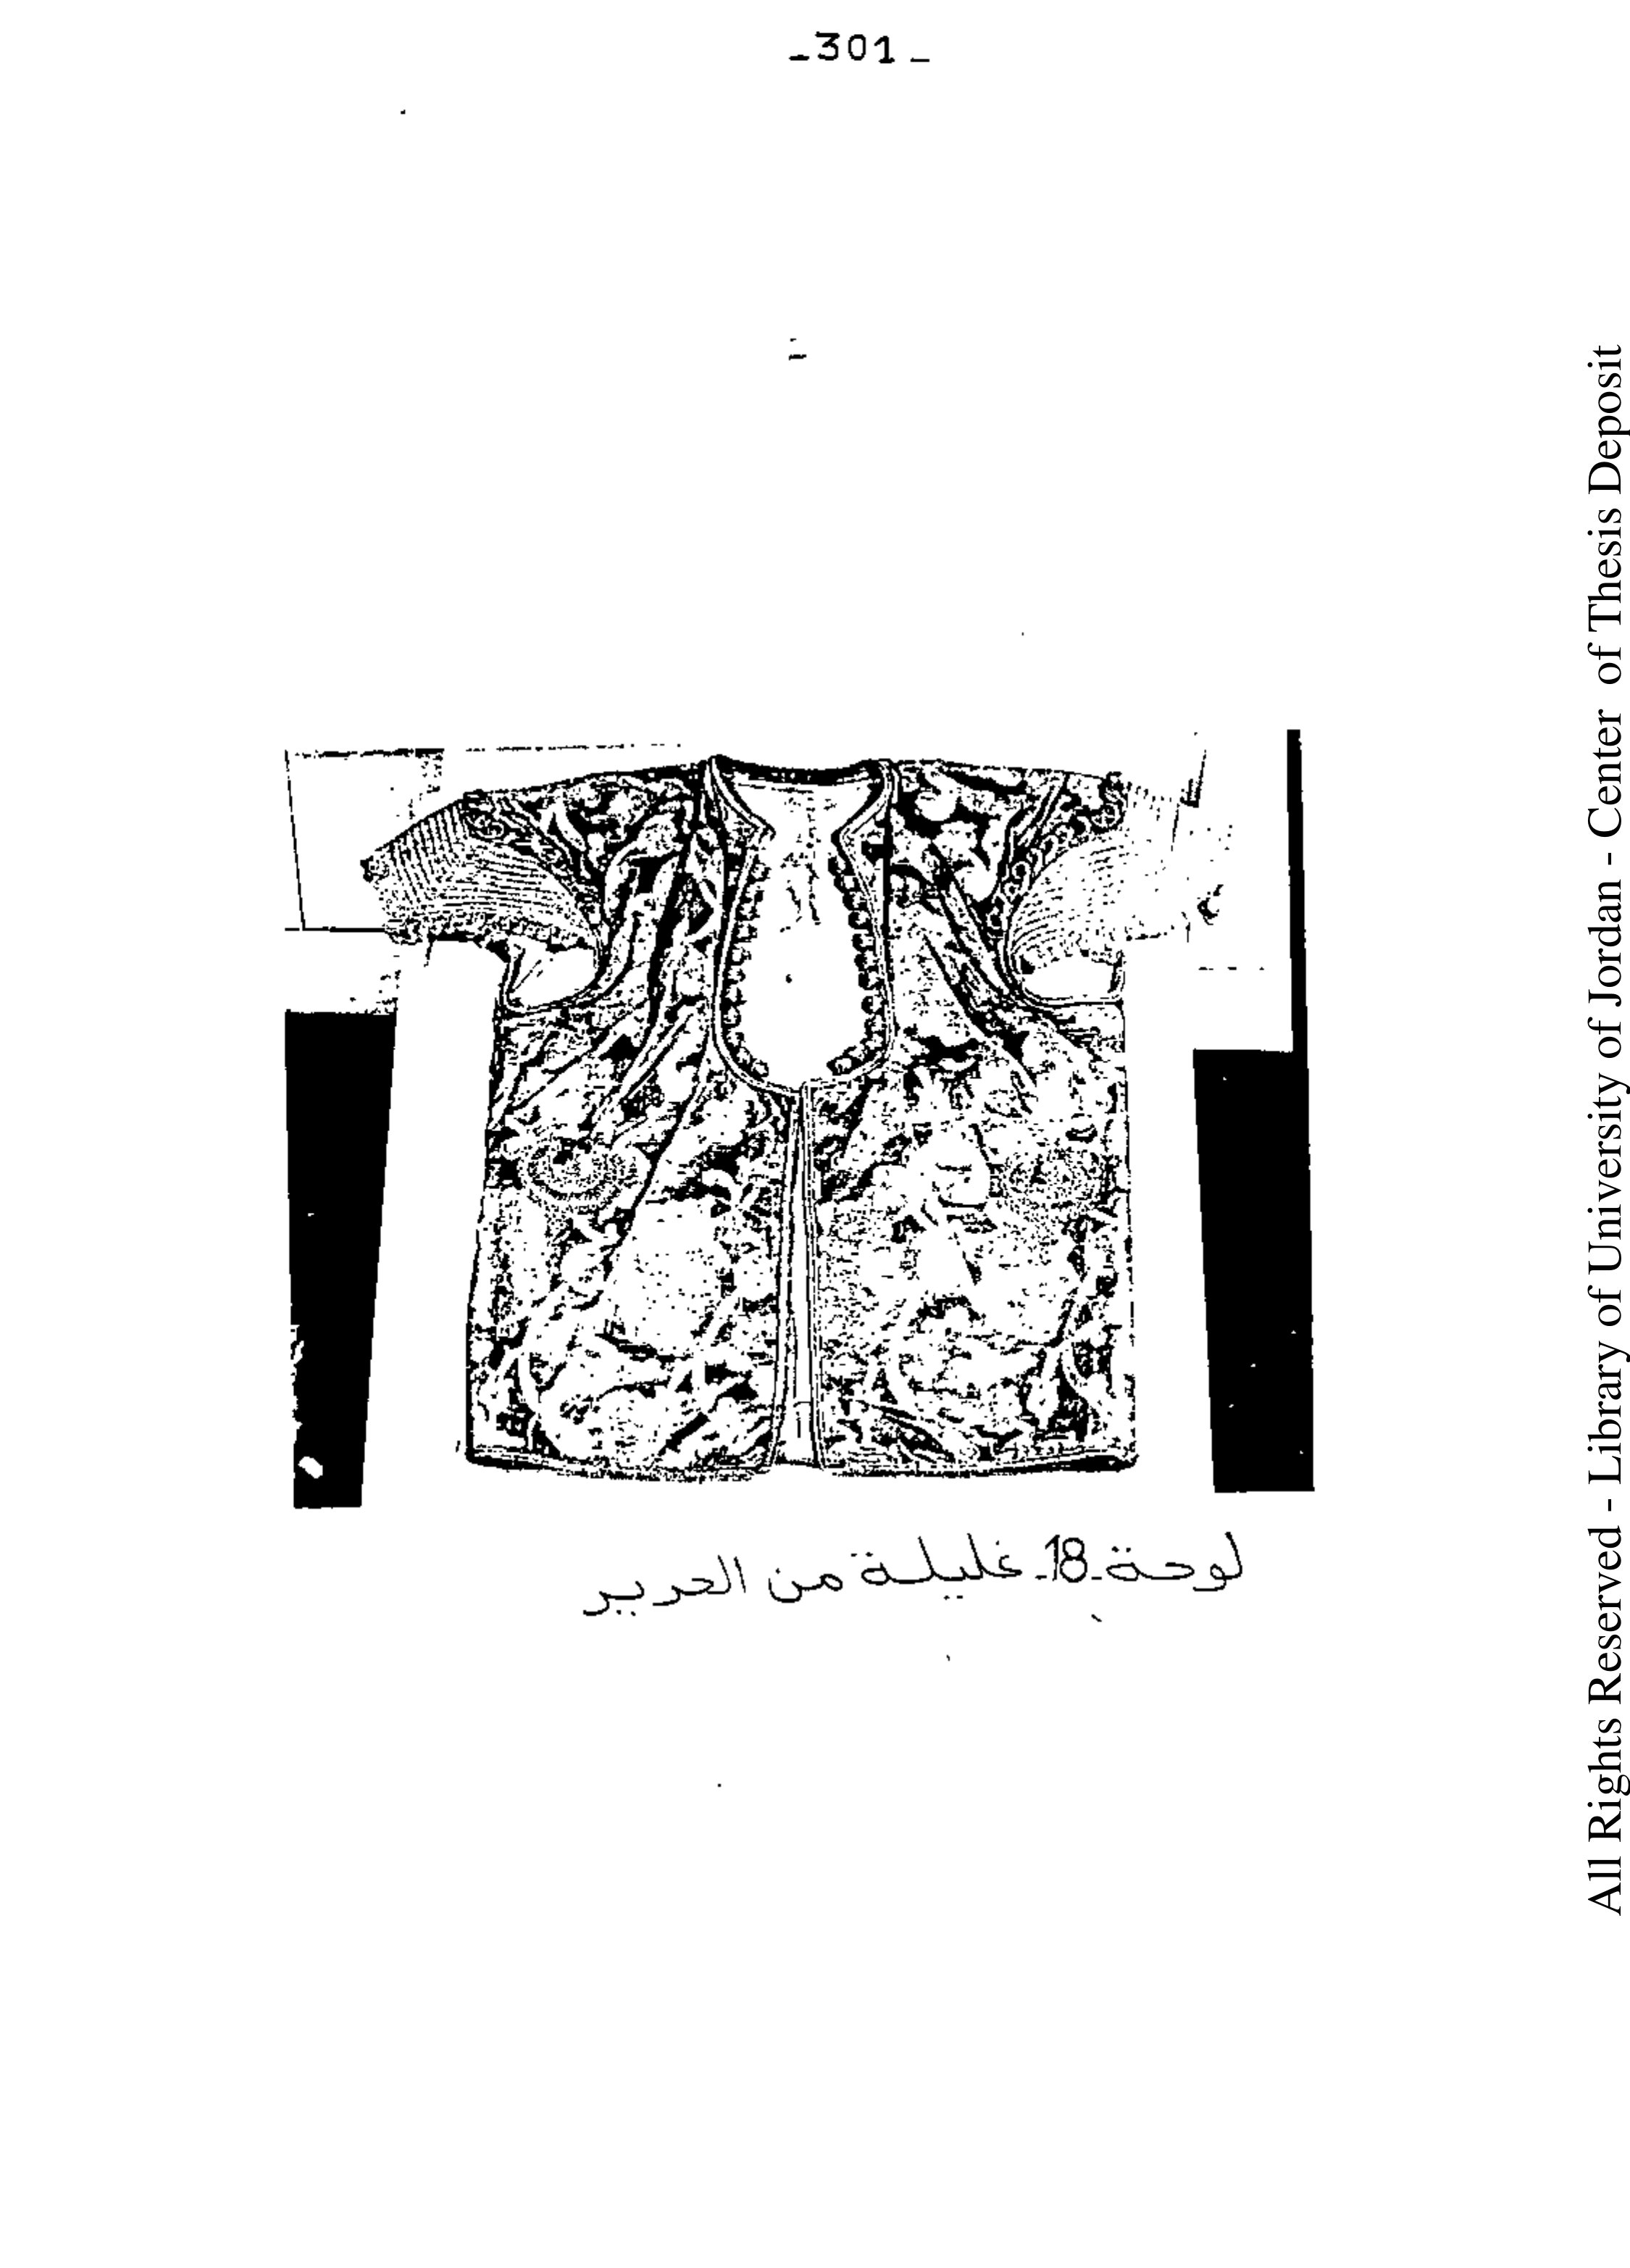 -301-
لوحة-18- غليلة من الحرير
All Rights Reserved - Library of University of Jordan - Center of Thesis Deposit